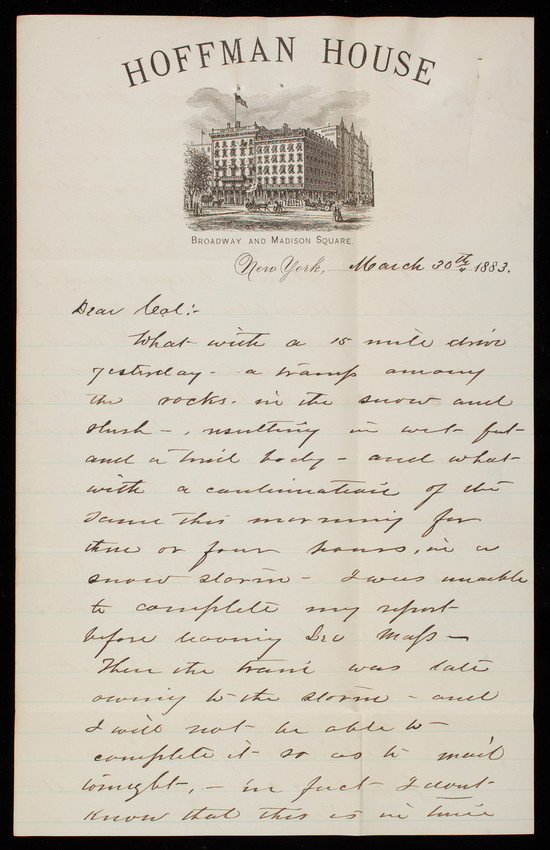 HOFFMAN HOUSE
BROADWAY AND MADISON SQUARE.
New York, March 30th 1883.
Dear Col:-
What with a 15 mile drive
yesterday - a tramp among
the rocks. in the snow and
slush -, resulting in wet feet
and a tired body - and what
with a continuation of the
same this morning for
three or four hours, in a
snow storm - I was unable
to complete my report
before leaving Mass -
Then the train was late
owing to the storm - and
I will not be able to
complete it so as to mail
tonight, - in fact I dont
know that this is in time